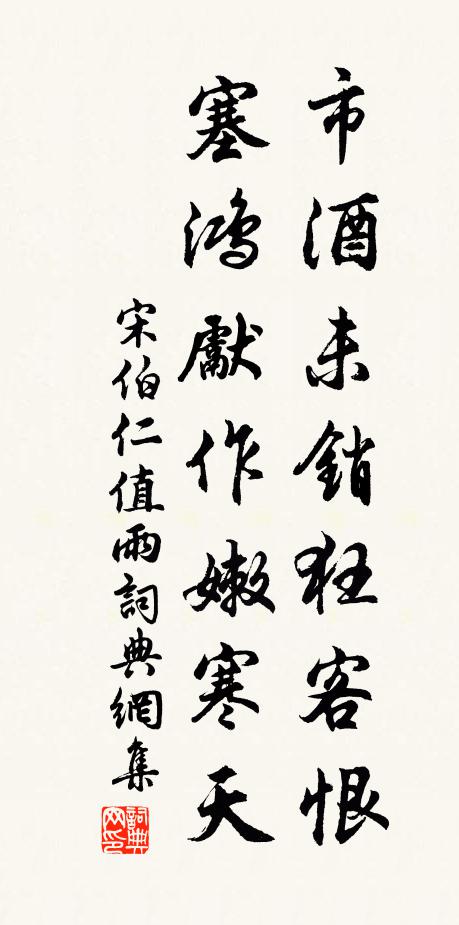 市酒未銷狂客恨
塞鴻獻作嫩寒天
宋伯仁值雨詞典網集
詞典网印